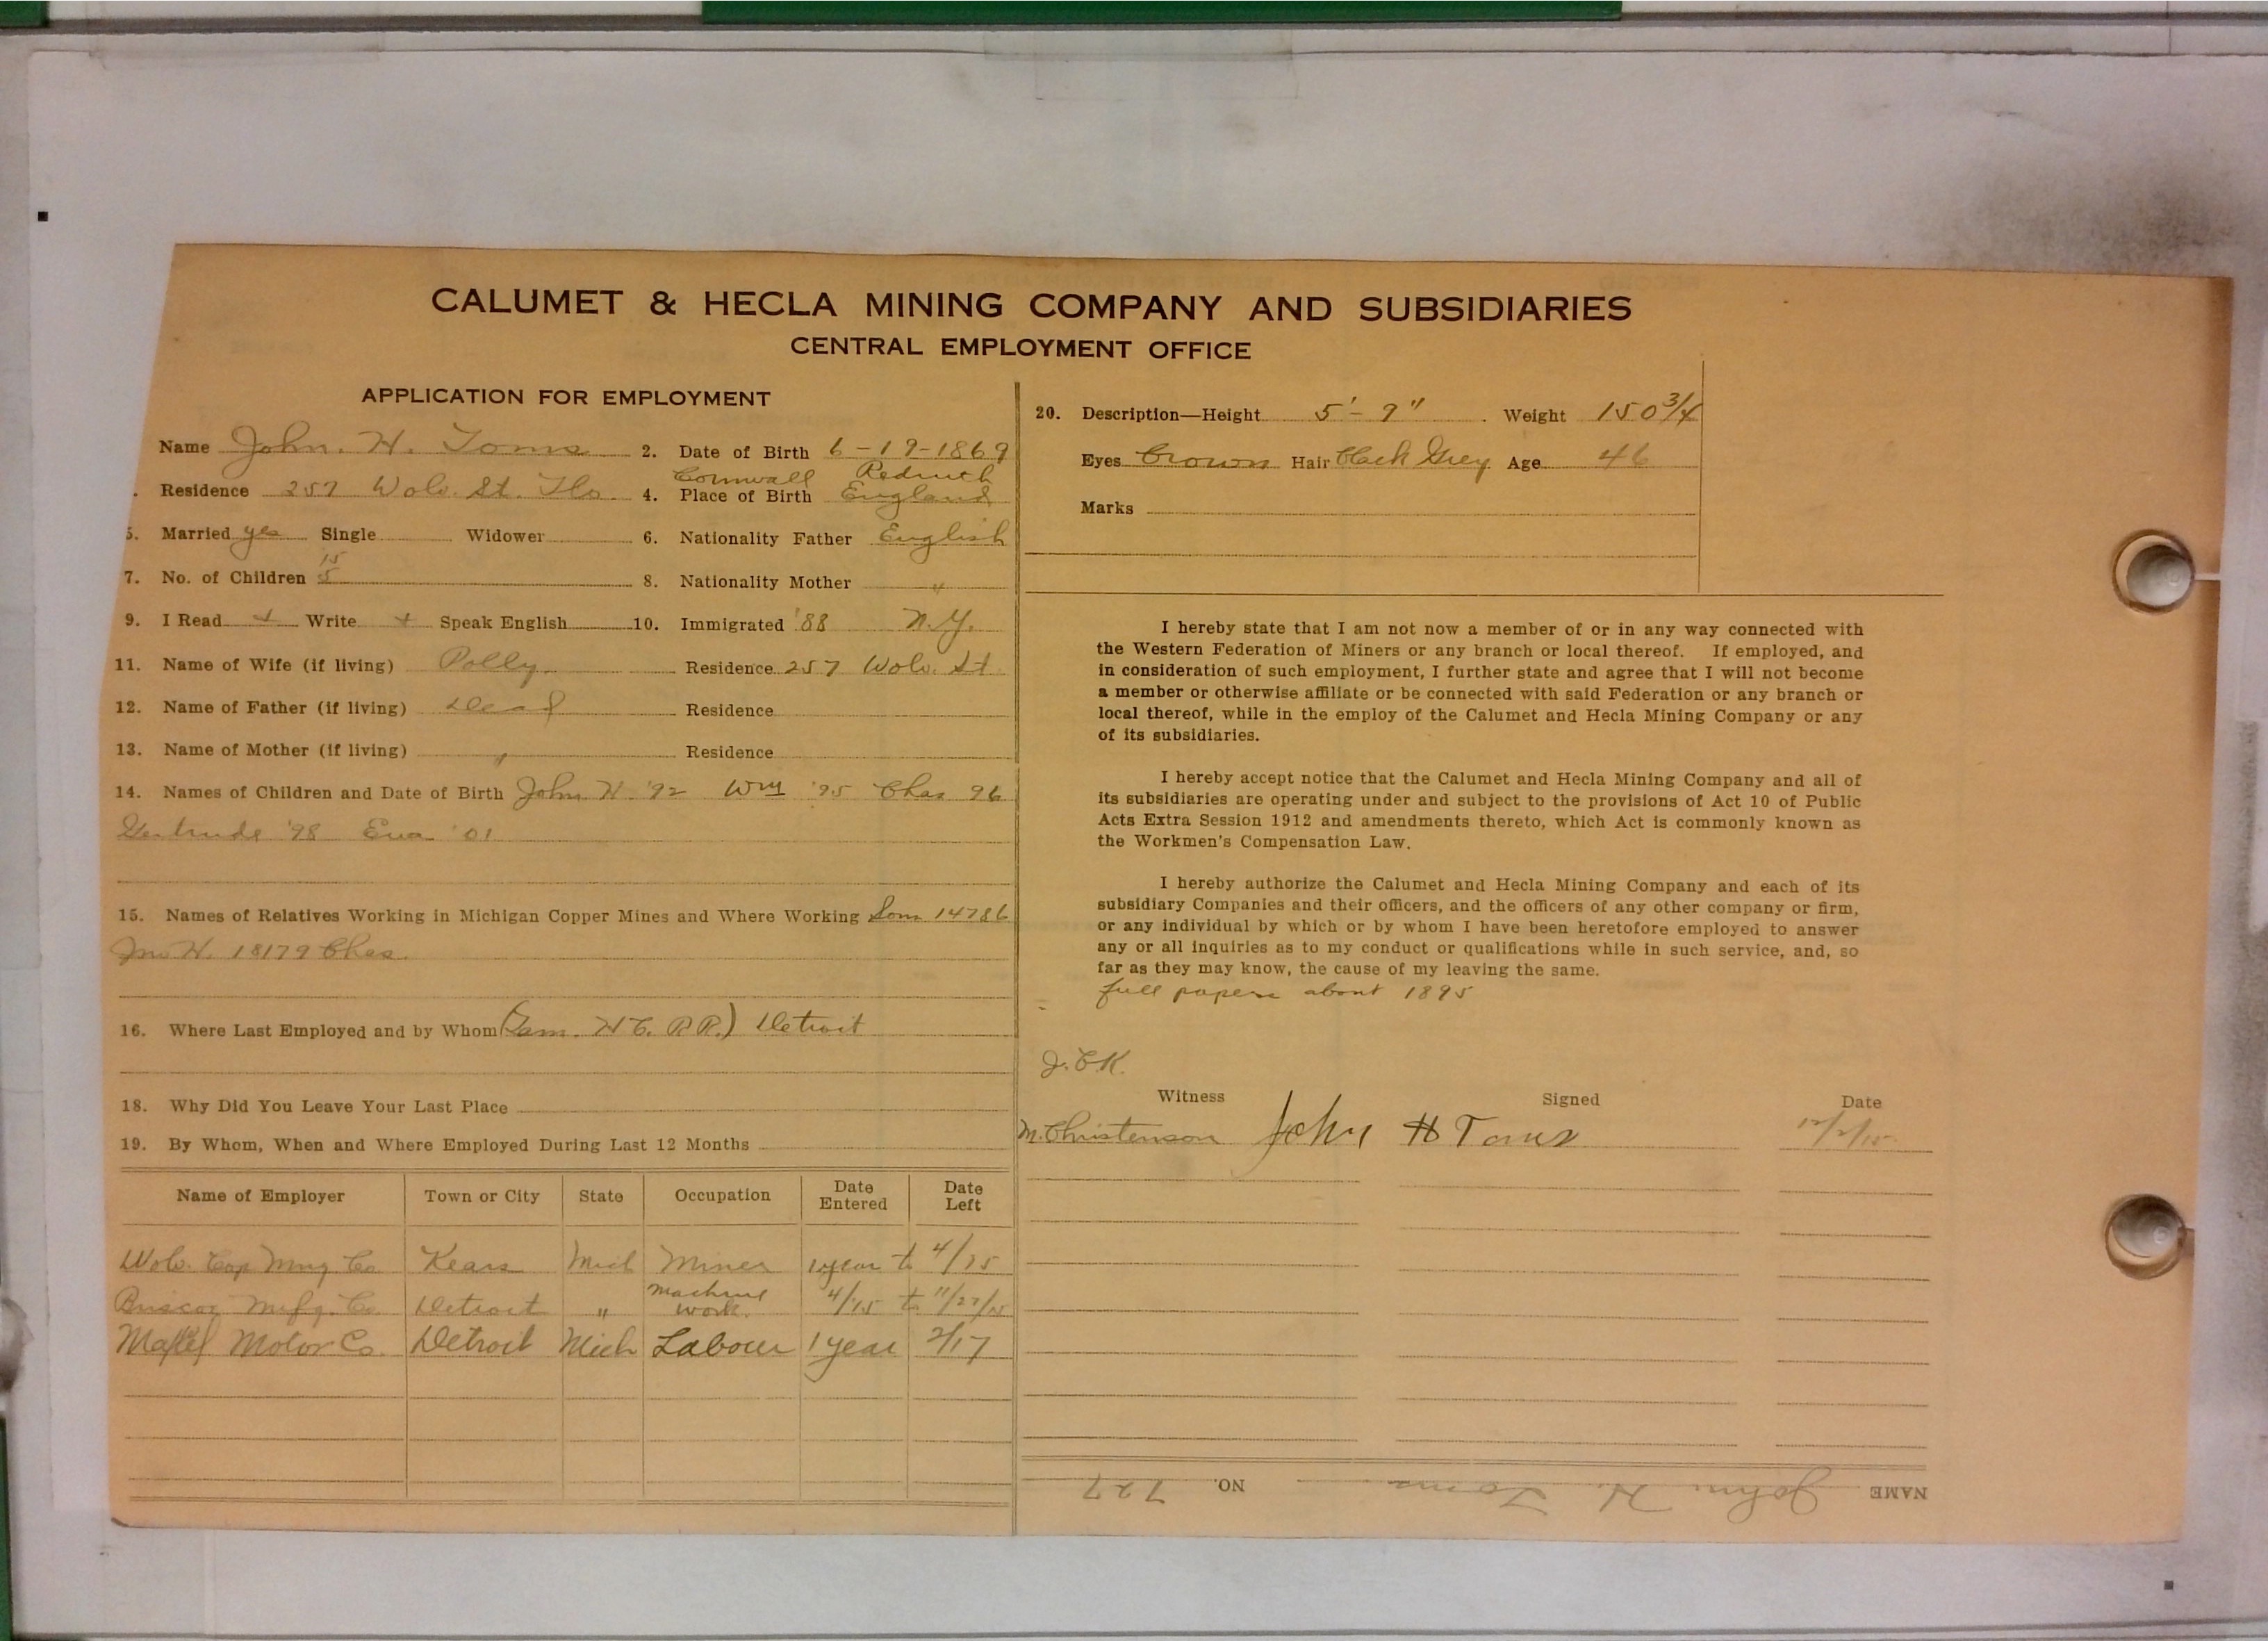 CALUMET & HECLA MINING COMPANY AND SUBSIDIARIES
CENTRAL EMPLOYMENT OFFICE
APPLICATION FOR EMPLOYMENT
Name John. H. Toms 2. Date of Birth 6-19-1869
Cornwall Redruth
Residence 257 Wolv. St. 4. Place of Birth England
5. Married yes Single Widower 6. Nationality Father English
15
7. No. of Children 5 8. Nationality Mother "
9. I Read + Write + Speak English 10. Immigrated '88 N.Y.
11. Name of Wife (if living) Polly Residence 257 Wolv. St
12. Name of Father (if living) Dead Residence
13. Name of Mother (if living) " Residence
14. Names of Children and Date of Birth John H. '92 Wm '95 Chas 96
Gertrude '98 Eva '01
15. Names of Relatives Working in Michigan Copper Mines and Where Working Sons 14786
Jno H. 18179 Chas.
16. Where Last Employed and by Whom H C. R R.) Detroit
18. Why Did You Leave Your Last Place
19. By Whom, When and Where Employed During Last 12 Months
Name of Employer Town or City State Occupation Date Entered Date Left
Wolv. Cop Mng. Co Kears Mich Miner 1 year to 4/15
Briscoe Mnfg. Co. Detroit " Machine work. 4/15 to 11/27/15
Motor Co. Detroit Mich Labour 1 year 2/17
20. Description—Height 5'-9" Weight 150 3/4
Eyes Brown Hair Black Grey Age 46
Marks
I hereby state that I am not now a member of or in any way connected with
the Western Federation of Miners or any branch or local thereof. If employed, and
in consideration of such employment, I further state and agree that I will not become
a member or otherwise affiliate or be connected with said Federation or any branch or
local thereof, while in the employ of the Calumet and Hecla Mining Company or any
of its subsidiaries.
I hereby accept notice that the Calumet and Hecla Mining Company and all of
its subsidiaries are operating under and subject to the provisions of Act 10 of Public
Acts Extra Session 1912 and amendments thereto, which Act is commonly known as
the Workmen's Compensation Law.
I hereby authorize the Calumet and Hecla Mining Company and each of its
subsidiary Companies and their officers, and the officers of any other company or firm,
or any individual by which or by whom I have been heretofore employed to answer
any or all inquiries as to my conduct or qualifications while in such service, and, so
far as they may know, the cause of my leaving the same.
full papers about 1895
J.C.K.
Witness Signed Date
M. Christenson John H Toms 12/2/15
NAME John H. Toms NO. 727